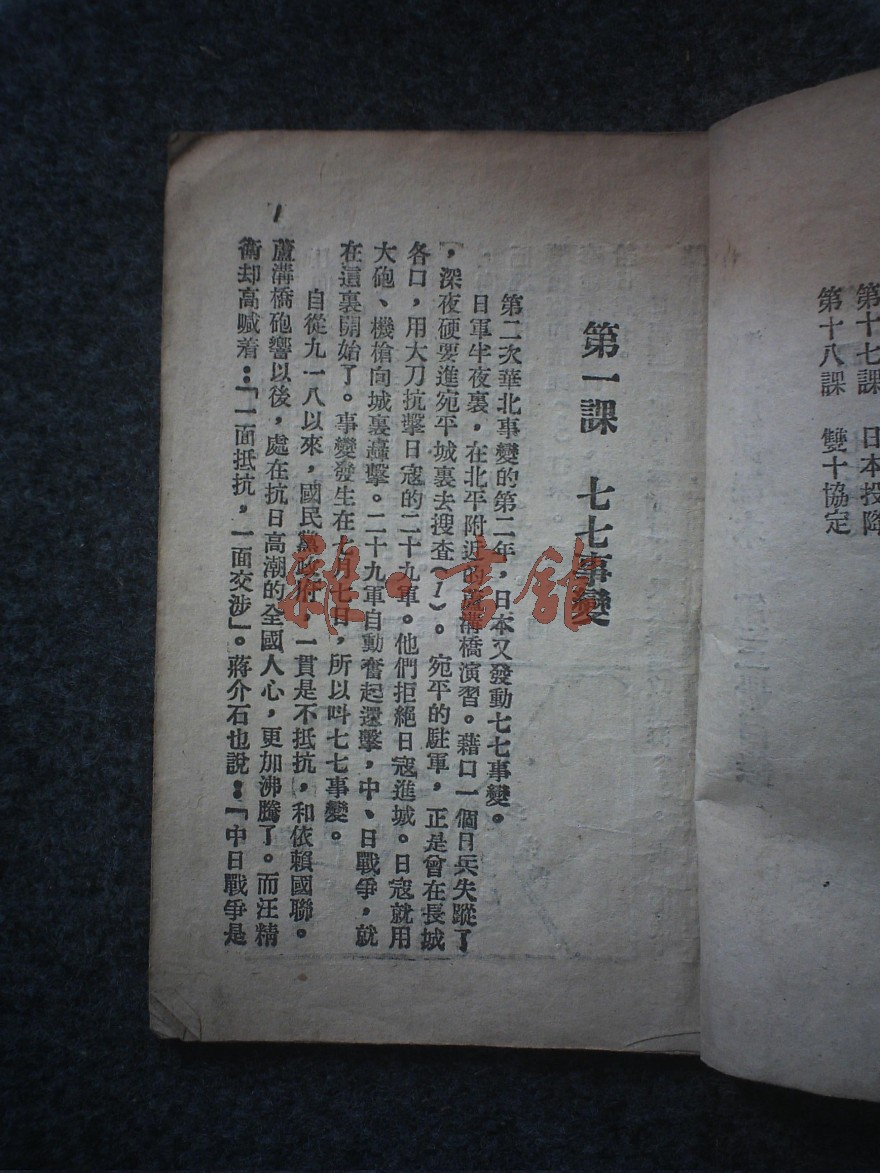 第十七課　日本投降
第十八課　雙十協定
第一課　七七事變
第二次華北事變的第二年，日本又發動七七事變。
日軍半夜裏，在北平附近的蘆溝橋演習。藉口一個日兵失蹤了
，深夜硬要進宛平城裏去搜查(1)。宛平的駐軍，正是曾在長城
各口，用大刀抗擊日寇的二十九軍。他們拒絕日寇進城。日寇就用
大砲、機槍向城裏轟擊。二十九軍自動奮起還擊，中、日戰爭，就
在這裏開始了。事變發生在七月七日，所以叫七七事變。
自從九一八以來，國民黨政府，一貫是不抵抗，和依賴國聯。
蘆溝橋砲響以後，處在抗日高潮的全國人心，更加沸騰了。而汪精
衛却高喊着：「一面抵抗，一面交涉」。蔣介石也說：「中日戰爭是
1
雜·書館